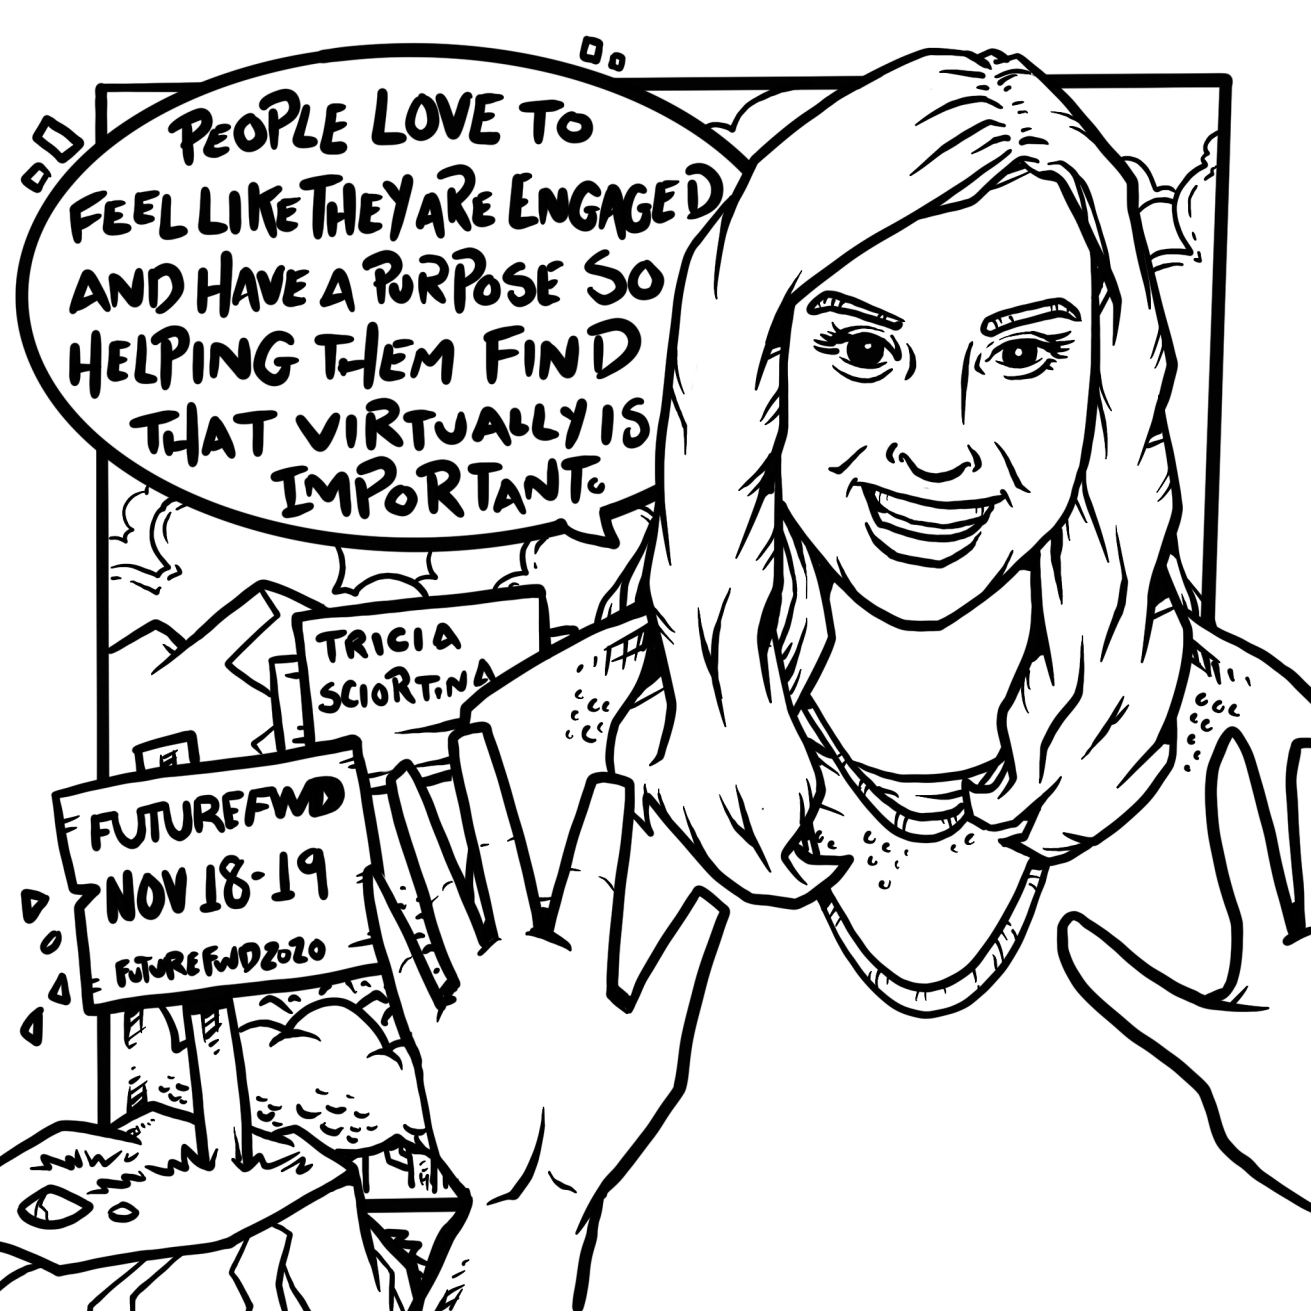 PEOPLE LOVE TO
FEEL LIKE THEY ARE ENGAGED
AND HAVE A PURPOSE SO
HELPING THEM FIND
THAT VIRTUALLY IS
IMPORTANT.
TRICIA
SCIORTINA
FUTUREFWD
NOV 18-19
FUTUREFWD2020